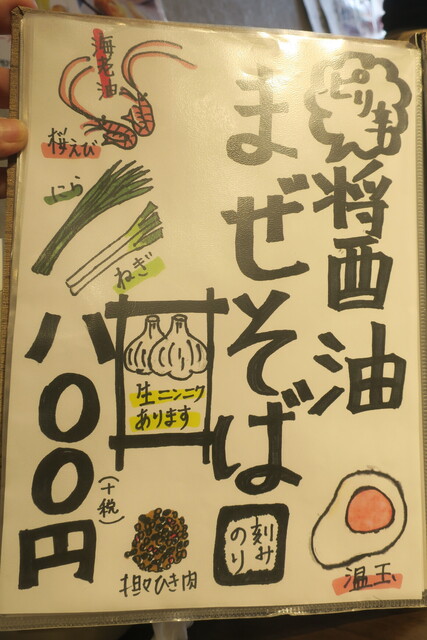 ピリ辛
醤油
まぜそば
海老油
桜えび
にら
ねぎ
生ニンニク
あります
八〇〇円
(+税)
担々ひき肉
刻み
のり
温玉